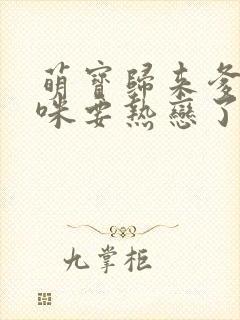 萌寶歸來爹
咪要熱戀了
九掌柜